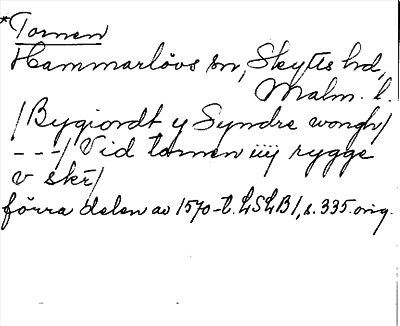 *Tomen
Hammarlövs sn, Skytts hd,
Malm. l.
/Bygiordt y Syndre wongh/
---/ Vid tomen iiij rygge
v skr/
förra delen av 1570-t. LSLB1, s. 335. orig.